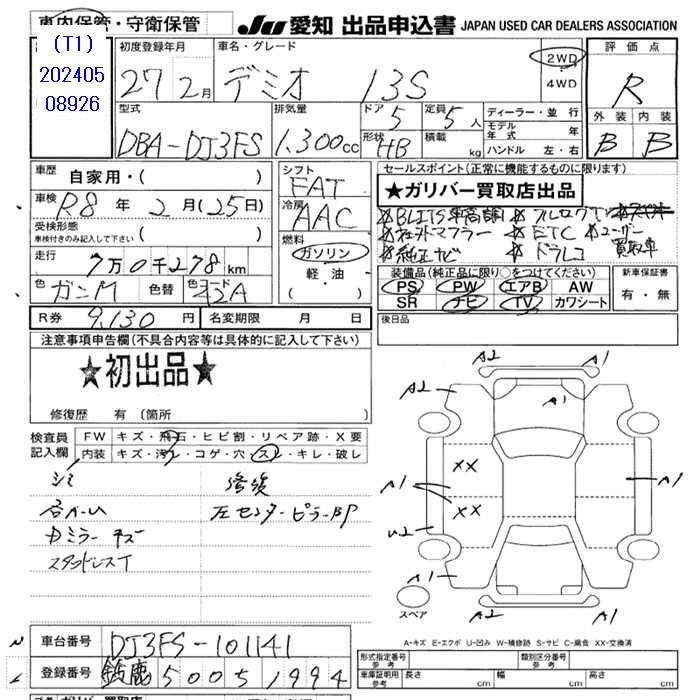 車内保管・守衛保管
JU 愛知 出品申込書 JAPAN USED CAR DEALERS ASSOCIATION
(T1)
202405
08926
初度登録年月
27 2月
車名・グレード
デミオ 13S
2WD
4WD
評価点
R
型式
DBA-DJ3FS
排気量
1,300cc
ドア
5
定員
5人
形状
HB
積載
kg
ディーラー・並行
モデル年式 年
ハンドル 左・右
外装 内装
B B
車歴 自家用・( )
車検 R8年 2月(25日)
受検形態
車検付きのみ記入して下さい ( )
走行 7万0千278km
色 ガンM 色替 色コード 42A
シフト
FAT
冷房
AAC
燃料
ガソリン
軽油
( )
セールスポイント(正常に機能するものに限ります)
★ガリバー買取店出品
★BLITS車高調 ★フルセグTV
★社外マフラー ★ETC ★ユーザー
★純正ナビ ★ドラレコ 買取車
装備品(純正品に限り○をつけてください)
PS PW エアB AW
SR ナビ TV カワシート
新車保証書
有・無
R券 9,130円 名変期限 月 日
後日品
注意事項申告欄(不具合内容等は具体的に記入して下さい)
★初出品★
修復歴 有(箇所 )
検査員記入欄
FW キズ・飛石・ヒビ割・リペア跡・X要
内装 キズ・汚レ・コゲ・穴・スレ・キレ・破レ
シミ 修復
各A・U 左センターピラーBP
Dミラーキズ
スタッドレスT
A2 A1
A2 A1
XX
A1 A1
XX
U2
A1
A2 A1
スペア
A-キズ E-エクボ U-凹み W-補修跡 S-サビ C-腐食 XX-交換済
車台番号 DJ3FS-101141
登録番号 鈴鹿 500 5 1994
形式指定番号
参考
類別区分番号
参考
車庫証明用
参考
長さ cm 幅 cm 高さ cm